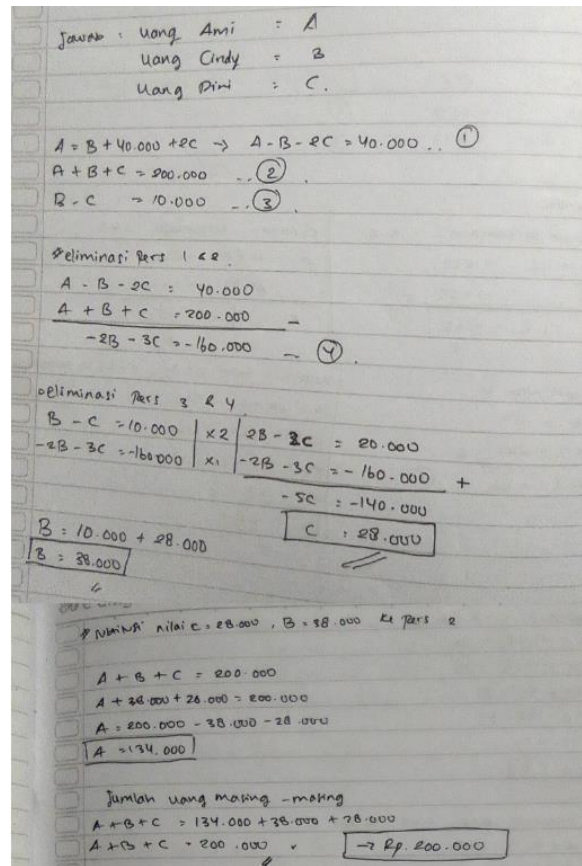 Jawab : Uang Ami : A
Uang Cindy = B
Uang Dini : C.
A = B + 40.000 + 2C → A - B - 2C = 40.000 .. ①
A + B + C = 200.000 .. ②
B - C = 10.000 .. ③
eliminasi Pers 1 & 2.
A - B - 2C = 40.000
A + B + C = 200.000 -
-2B - 3C = -160.000 - ④.
eliminasi Pers 3 & 4
B - C = 10.000 | x2 | 2B - 2C = 20.000
-2B - 3C = -160000 | x1 | -2B - 3C = -160.000 +
-5C = -140.000
C = 28.000
B = 10.000 + 28.000
B = 38.000
nilai C = 28.000, B = 38.000 ke Pers 2
A + B + C = 200.000
A + 38.000 + 28.000 = 200.000
A = 200.000 - 38.000 - 28.000
A = 134.000
Jumlah uang masing - masing
A + B + C = 134.000 + 38.000 + 28.000
A + B + C = 200.000 → Rp. 200.000